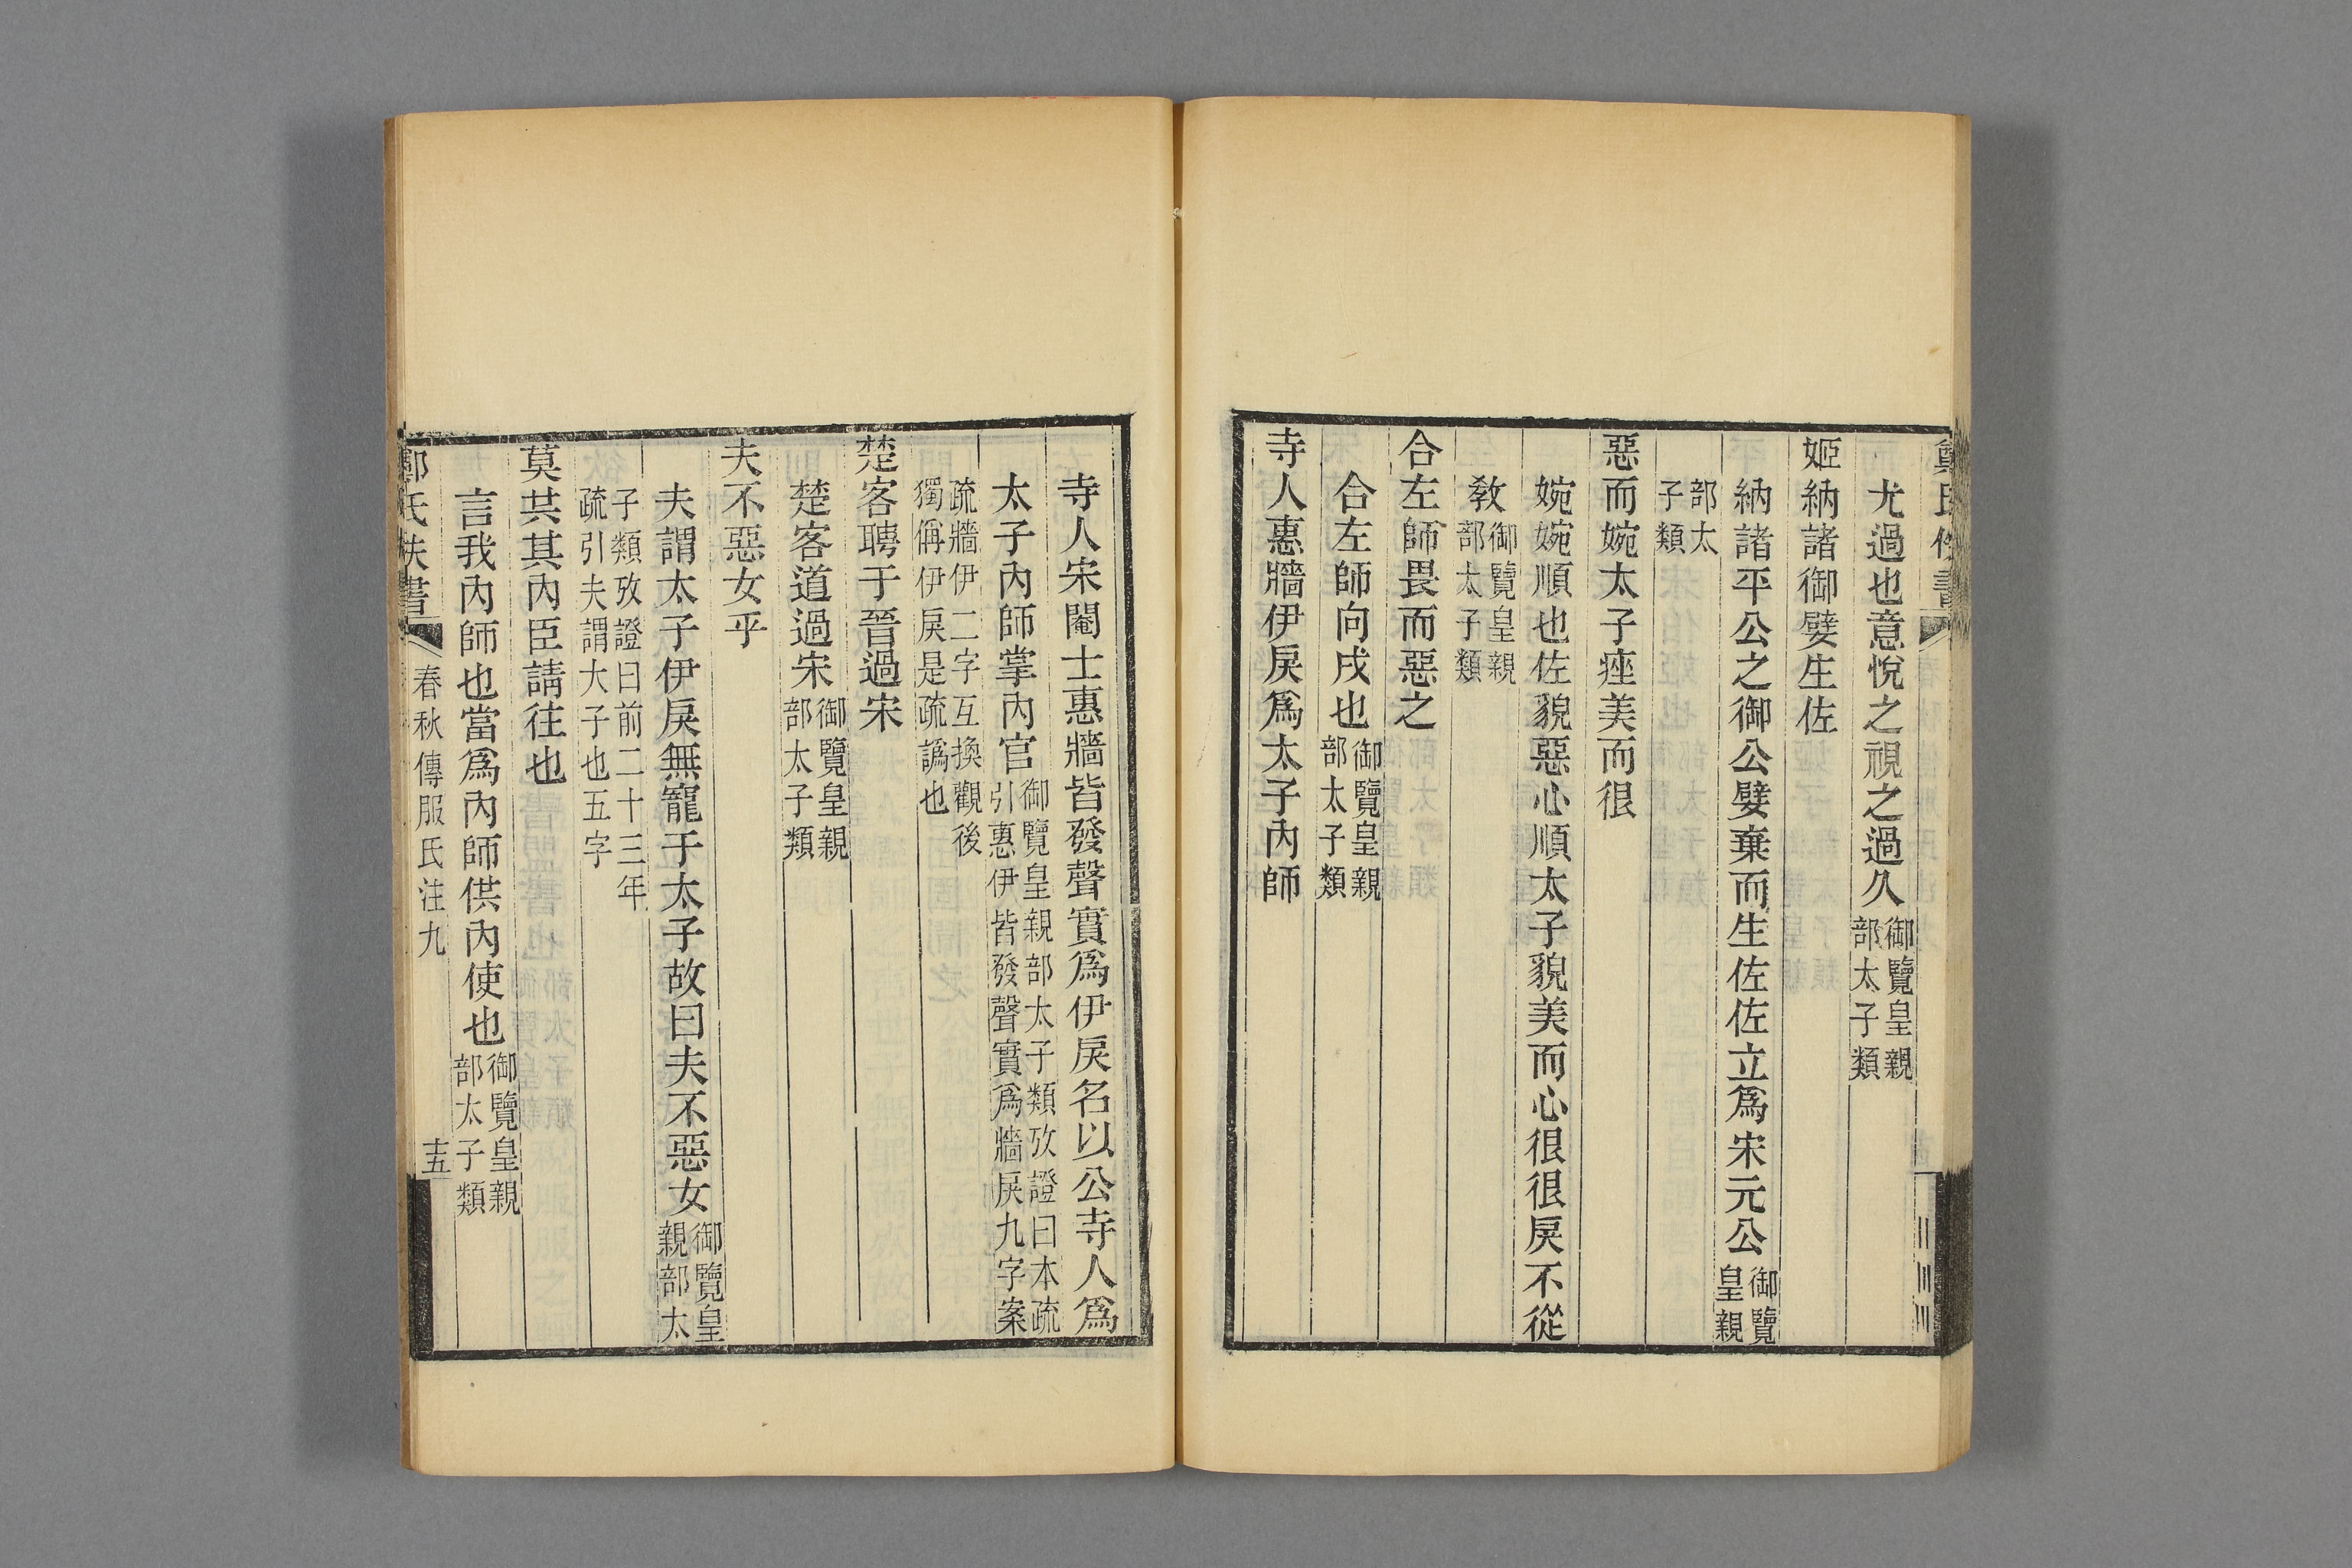 尤過也意悅之視之過久御覽皇親部太子類
姬納諸御嬖生佐
納諸平公之御公嬖棄而生佐佐立爲宋元公御覽皇親
部太子類
惡而婉太子痤美而很
婉婉順也佐貌惡心順太子貌美而心很很戾不從
敎御覽皇親部太子類
合左師畏而惡之
合左師向戌也御覽皇親部太子類
寺人惠牆伊戾爲太子內師
寺人宋閹士惠牆皆發聲實爲伊戾名以公寺人爲
太子內師掌內官御覽皇親部太子類攷證曰本疏引惠伊皆發聲實爲牆戾九字案
疏牆伊二字互換觀後獨偁伊戾是疏譌也
楚客聘于晉過宋
楚客道過宋御覽皇親部太子類
夫不惡女乎
夫謂太子伊戾無寵于太子故曰夫不惡女御覽皇親部太
子類攷證曰前二十三年疏引夫謂大子也五字
莫共其內臣請往也
言我內師也當爲內師供內使也御覽皇親部太子類
鄭氏佚書
春秋傳服氏注九
十五